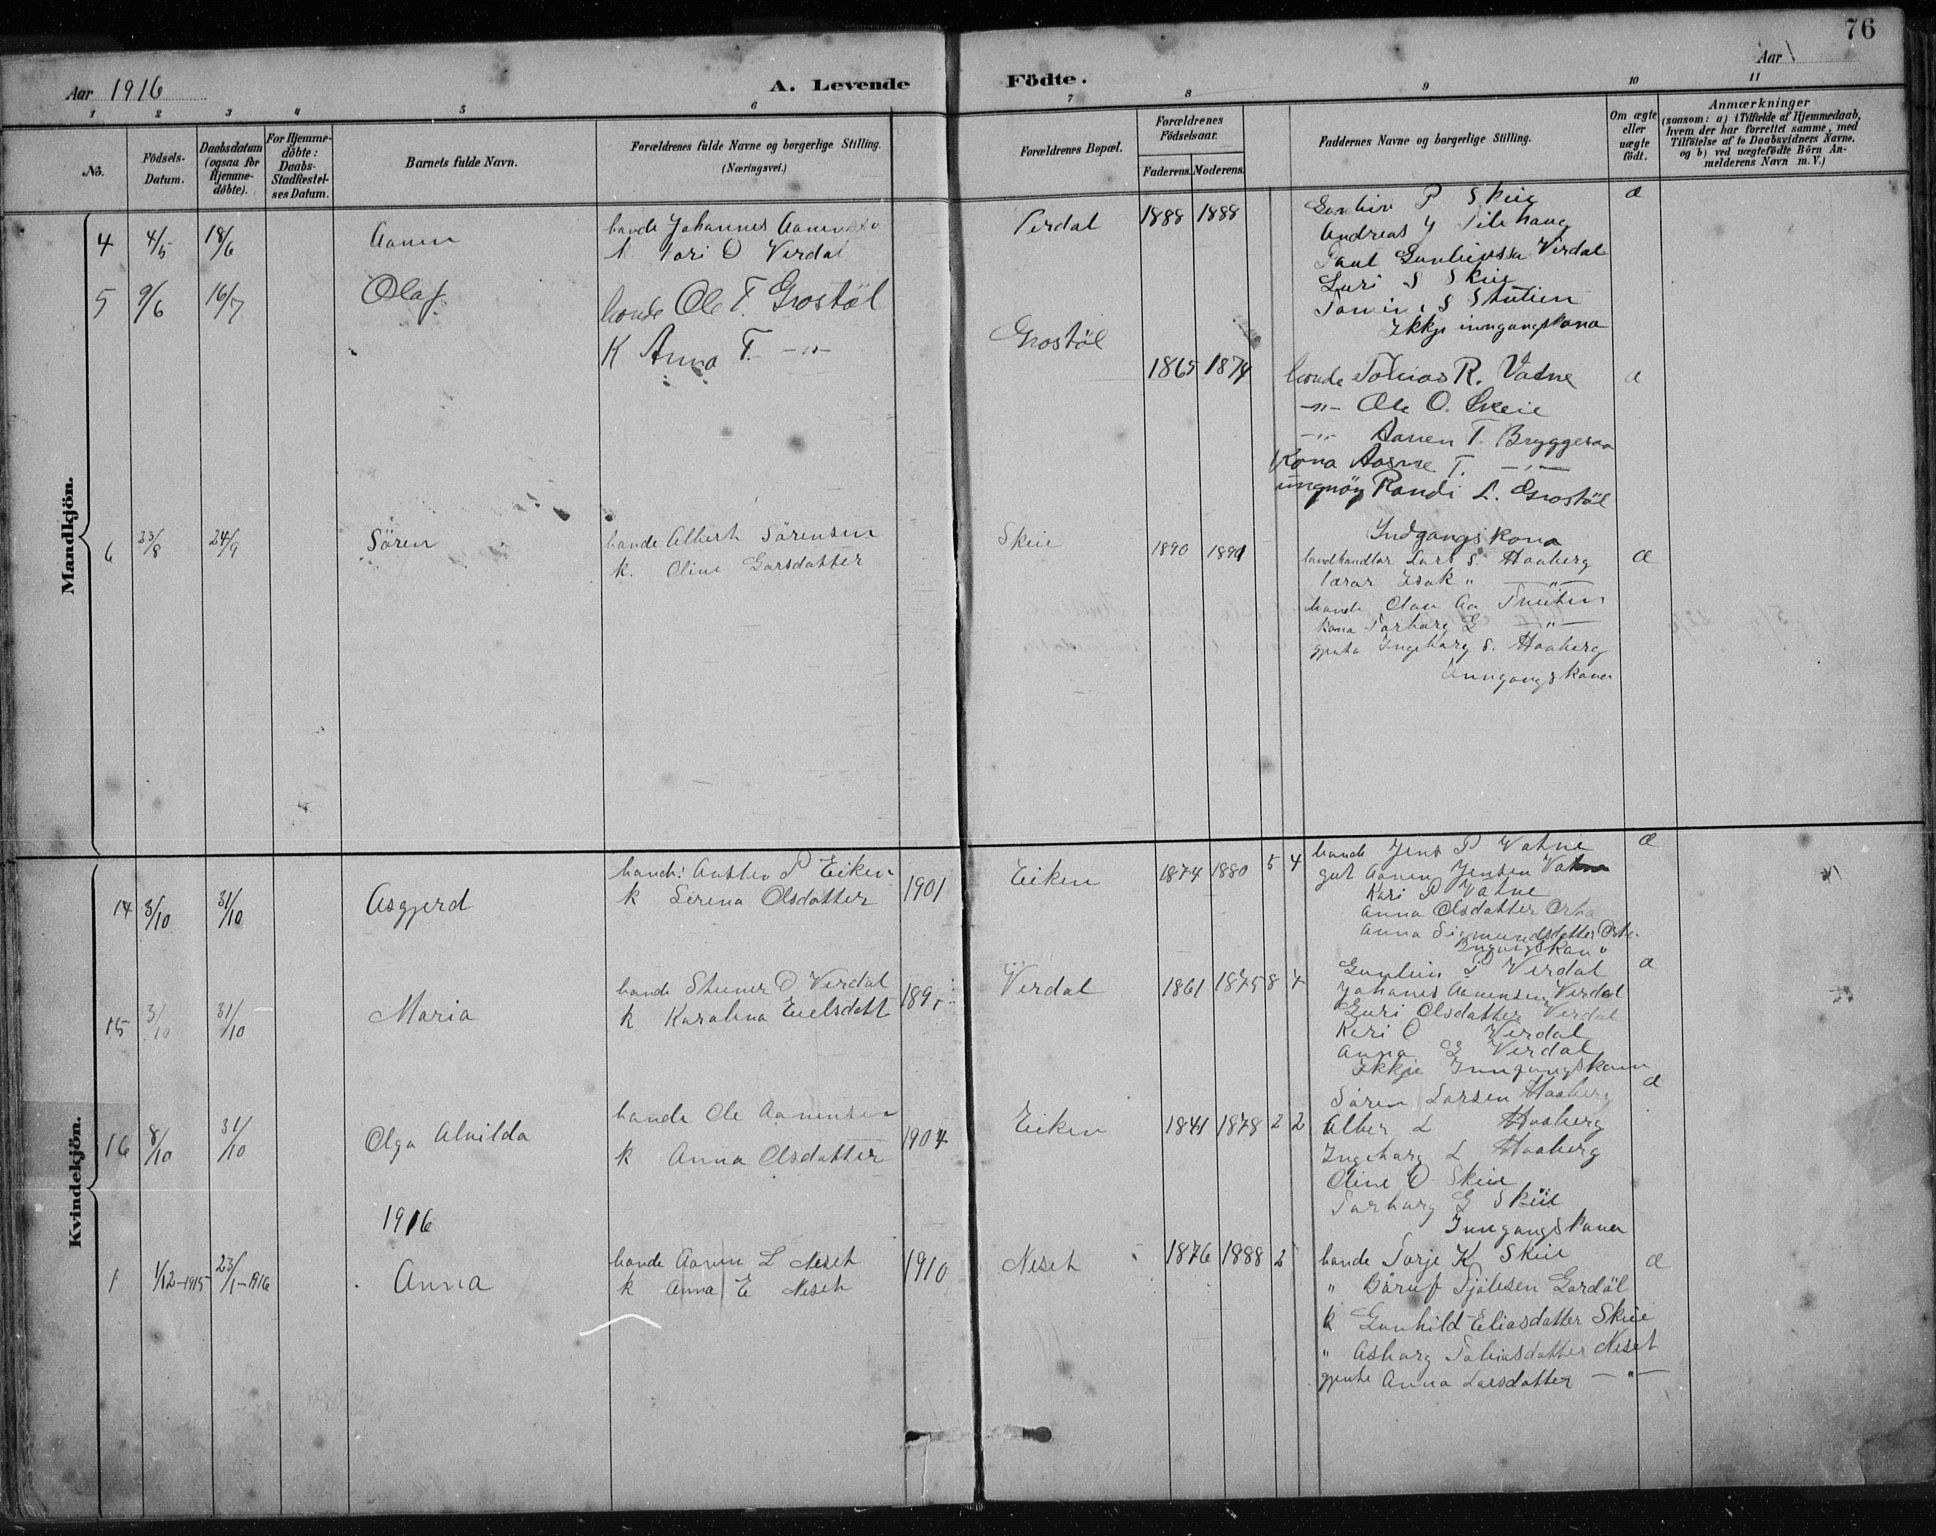 76
Aar 1916
A. Levende Födte.
Aar 1
1 2 3 4 5 6 7 8 9 10 11
No.
Födsels-Datum.
Daabsdatum (ogsaa for Hjemme-döbte).
For Hjemme-döbte: Daabs-Stadfæstel-ses Datum.
Barnets fulde Navn.
Forældrenes fulde Navne og borgerlige Stilling. (Næringsvei.)
Forældrenes Bopæl.
Forældrenes Födselsaar.
Faderens. Moderens.
Faddernes Navne og borgerlige Stilling.
Om ægte eller uægte födt.
Anmærkninger (saasom: a) i Tilfælde af Hjemmedaab, hvem der har forrettet samme, med Tilföielse af to Daabsvidners Navne, og b) ved uægtefödte Börn An-melderens Navn m. V.)
Mandkjön.
4 4/5 18/6 Aanen bonde Johannes Verdal 1888 1888 P Skeie æ
O Verdal
Andreas
Paul Verdal
Guri S Skeie
S
Ikkje inngangskona
5 9/6 16/7 Olaf bonde Ole T. Grostöl Grostöl
K Anna T. —"—
1865 1874 bonde Tobias R. Vatne æ
—"— Ole O. Skeie
—"— Aanen T. Bryggesaa
Kona Aasne T. —"—
ungmöy Randi L. Grostöl
Indgangskona
6 23/8 24/9 Sören bonde Albert Sörensen Skeie 1890 1891 æ
k. Oline Garsdatter
landhandlar Lars S. Haaberg
lærar Isak " —"—
bonde Olav Aa Tveiten
kona Torborg G —"—
gjenta Ingeborg S. Haaberg
Inngangskona
Kvindekjön.
14 3/10 31/10 Asgjerd bonde: P Eiken 1901 Eiken 1874 1880 5 4 bonde Jens P Vatne æ
k Serena Olsdatter
gut Aanen Jensen Vatne
Kari P Vatne
Anna Olsdatter
Anna Sigmundsdatter
15 3/10 31/10 Maria bonde O Verdal Verdal 1861 1875 8 7 P Verdal æ
k Karolina
Johanes Aanensen Verdal
Guri Olsdatter Verdal
Kari O Verdal
Anna G Verdal
Ikkje Inngangskona
16 8/10 31/10 Olga Alvilda bonde Ole Aanensen 1904 Eiken 1841 1878 2 2 Sören Larsen Haaberg æ
k Anna Olsdatter
Alber L Haaberg
Ingeborg L Haaberg
Oline O Skeie
Torborg G Skeie
Inngangskona
1916
1 1/12-1915 23/1-1916 Anna bonde Aanen L Neset 1910 Neset 1876 1888 2 bonde Torje K Skeie æ
k Anna E Neset
" Gardöl
k Gunhild Eliasdatter Skeie
" Asborg Tobiasdatter Neset
gjente Anna Larsdatter —"—